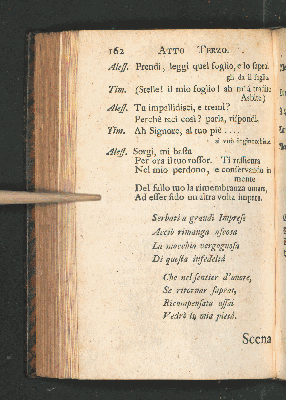 162 ATTO TERZO.
Aless. Prendi, leggi quel foglio, e lo sapra.
gli dà il foglio
Tim. (Stelle! il mio foglio! ah m'à tradita
Asbite)
Aless. Tu impallidisci, e tremi?
Perchè taci così? parla, rispondi.
Tim. Ah Signore, al tuo piè ....
si vuol inginocchiar
Aless. Sorgi, mi basta
Per ora il tuo rossor. Ti rassicura
Nel mio perdono, e conservando in
mente
Del fallo tuo la rimembranza amara,
Ad esser fido un'altra volta impara.
Serbati a grandi Imprese
Acciò rimanga ascosa
La macchia vergognosa
Di questa infedeltà
Che nel sentier d'onore,
Se ritornar saprai,
Ricompensata assai
Vedrò la mia pietà.
Scena